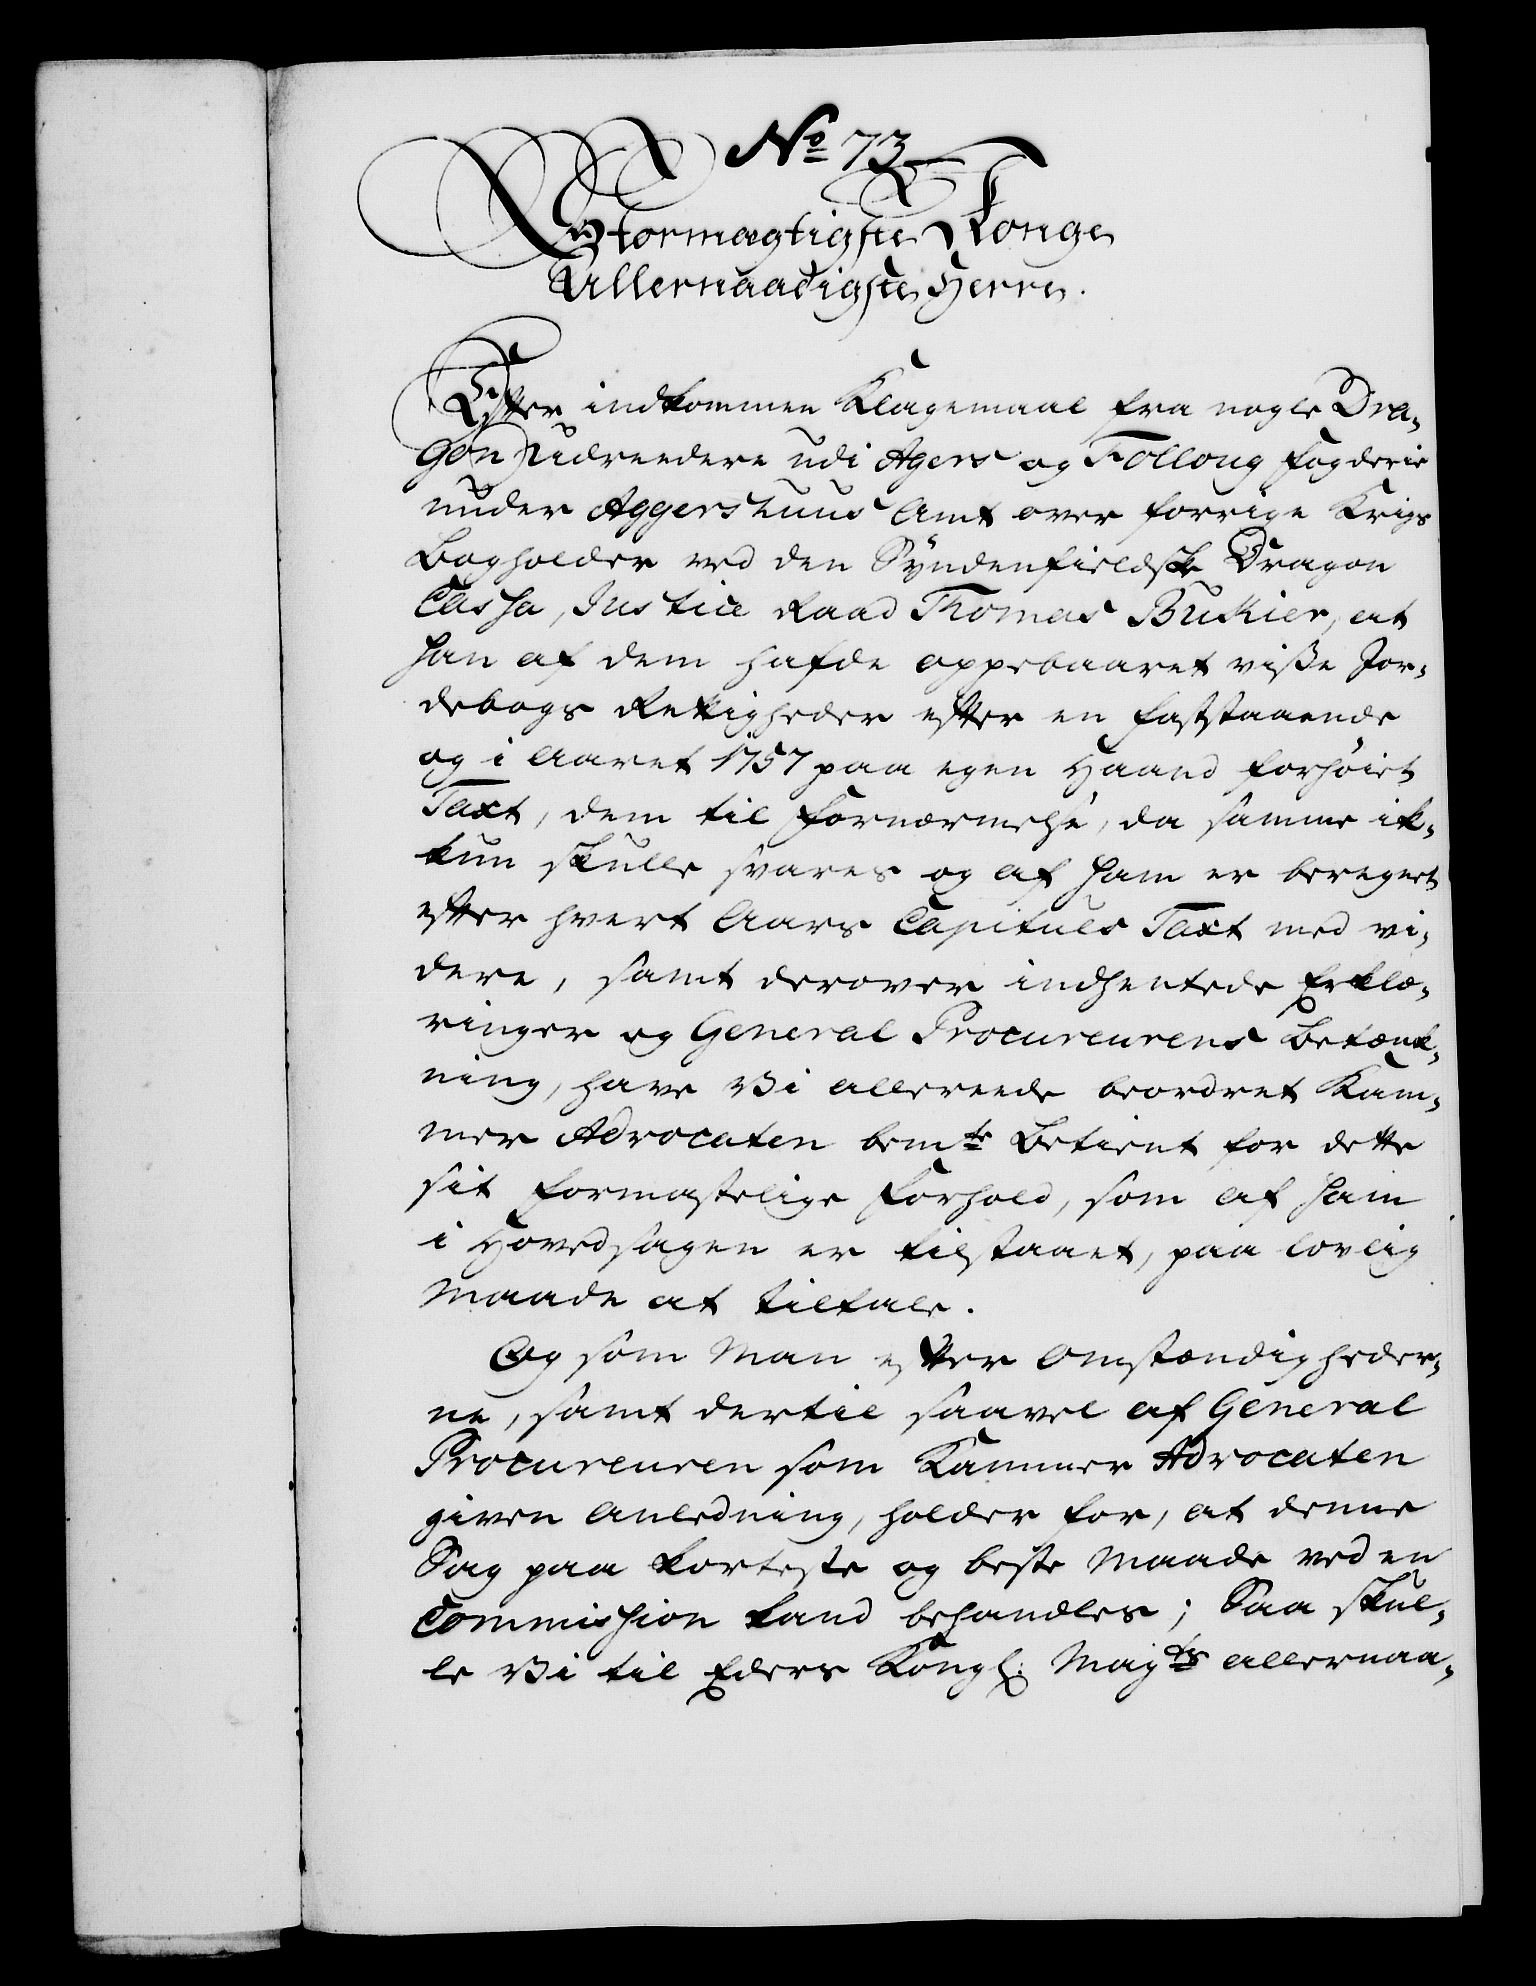 No 73
Stormægtigste Konge
Allernaadigste Herre.
Efter indkommen Klagemaal fra nogle Dra-
gon udreedere udi Agers og Folloug fogderie
under Aggershuus Amt over forrige Krigs
Bogholder ved den Syndenfieldske Dragon
Cassa, Justice Raad Thomas Bukier, at
han af dem hafde oppebaaret visse Jor-
debogs Rettigheder efter en faststaaende
og i Aaret 1757 paa egen Haand forhøiet
Taxt, dem til Fornærmelse, da samme ik-
kun skulle svares og af ham er beregnet
efter hvert Aars Capituls Taxt med vi-
dere, samt derover indhentede Erklæ-
ringer og General Procureurens Betænk-
ning, have Vi allereede beordret Kam-
mer Advocaten bemte Betient for dette
sit formastelige Forhold, som af ham
i Hovedsagen er tilstaaet, paa lovlig
Maade at tiltale.
Og som Man efter Omstændigheder-
ne, samt dertil saavel af General
Procureuren som Kammer Advocaten
given Anledning, holder for, at denne
Sag paa korteste og beste Maade ved en
Commission kand behandles; Saa skul-
le Vi til Eders Kongl: Mayts allernaa-